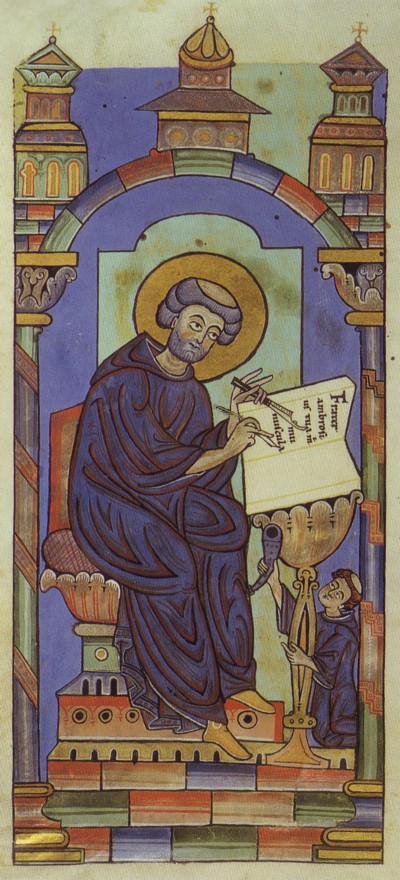 Frater
ambrosi
us tua m
mu
nuscula